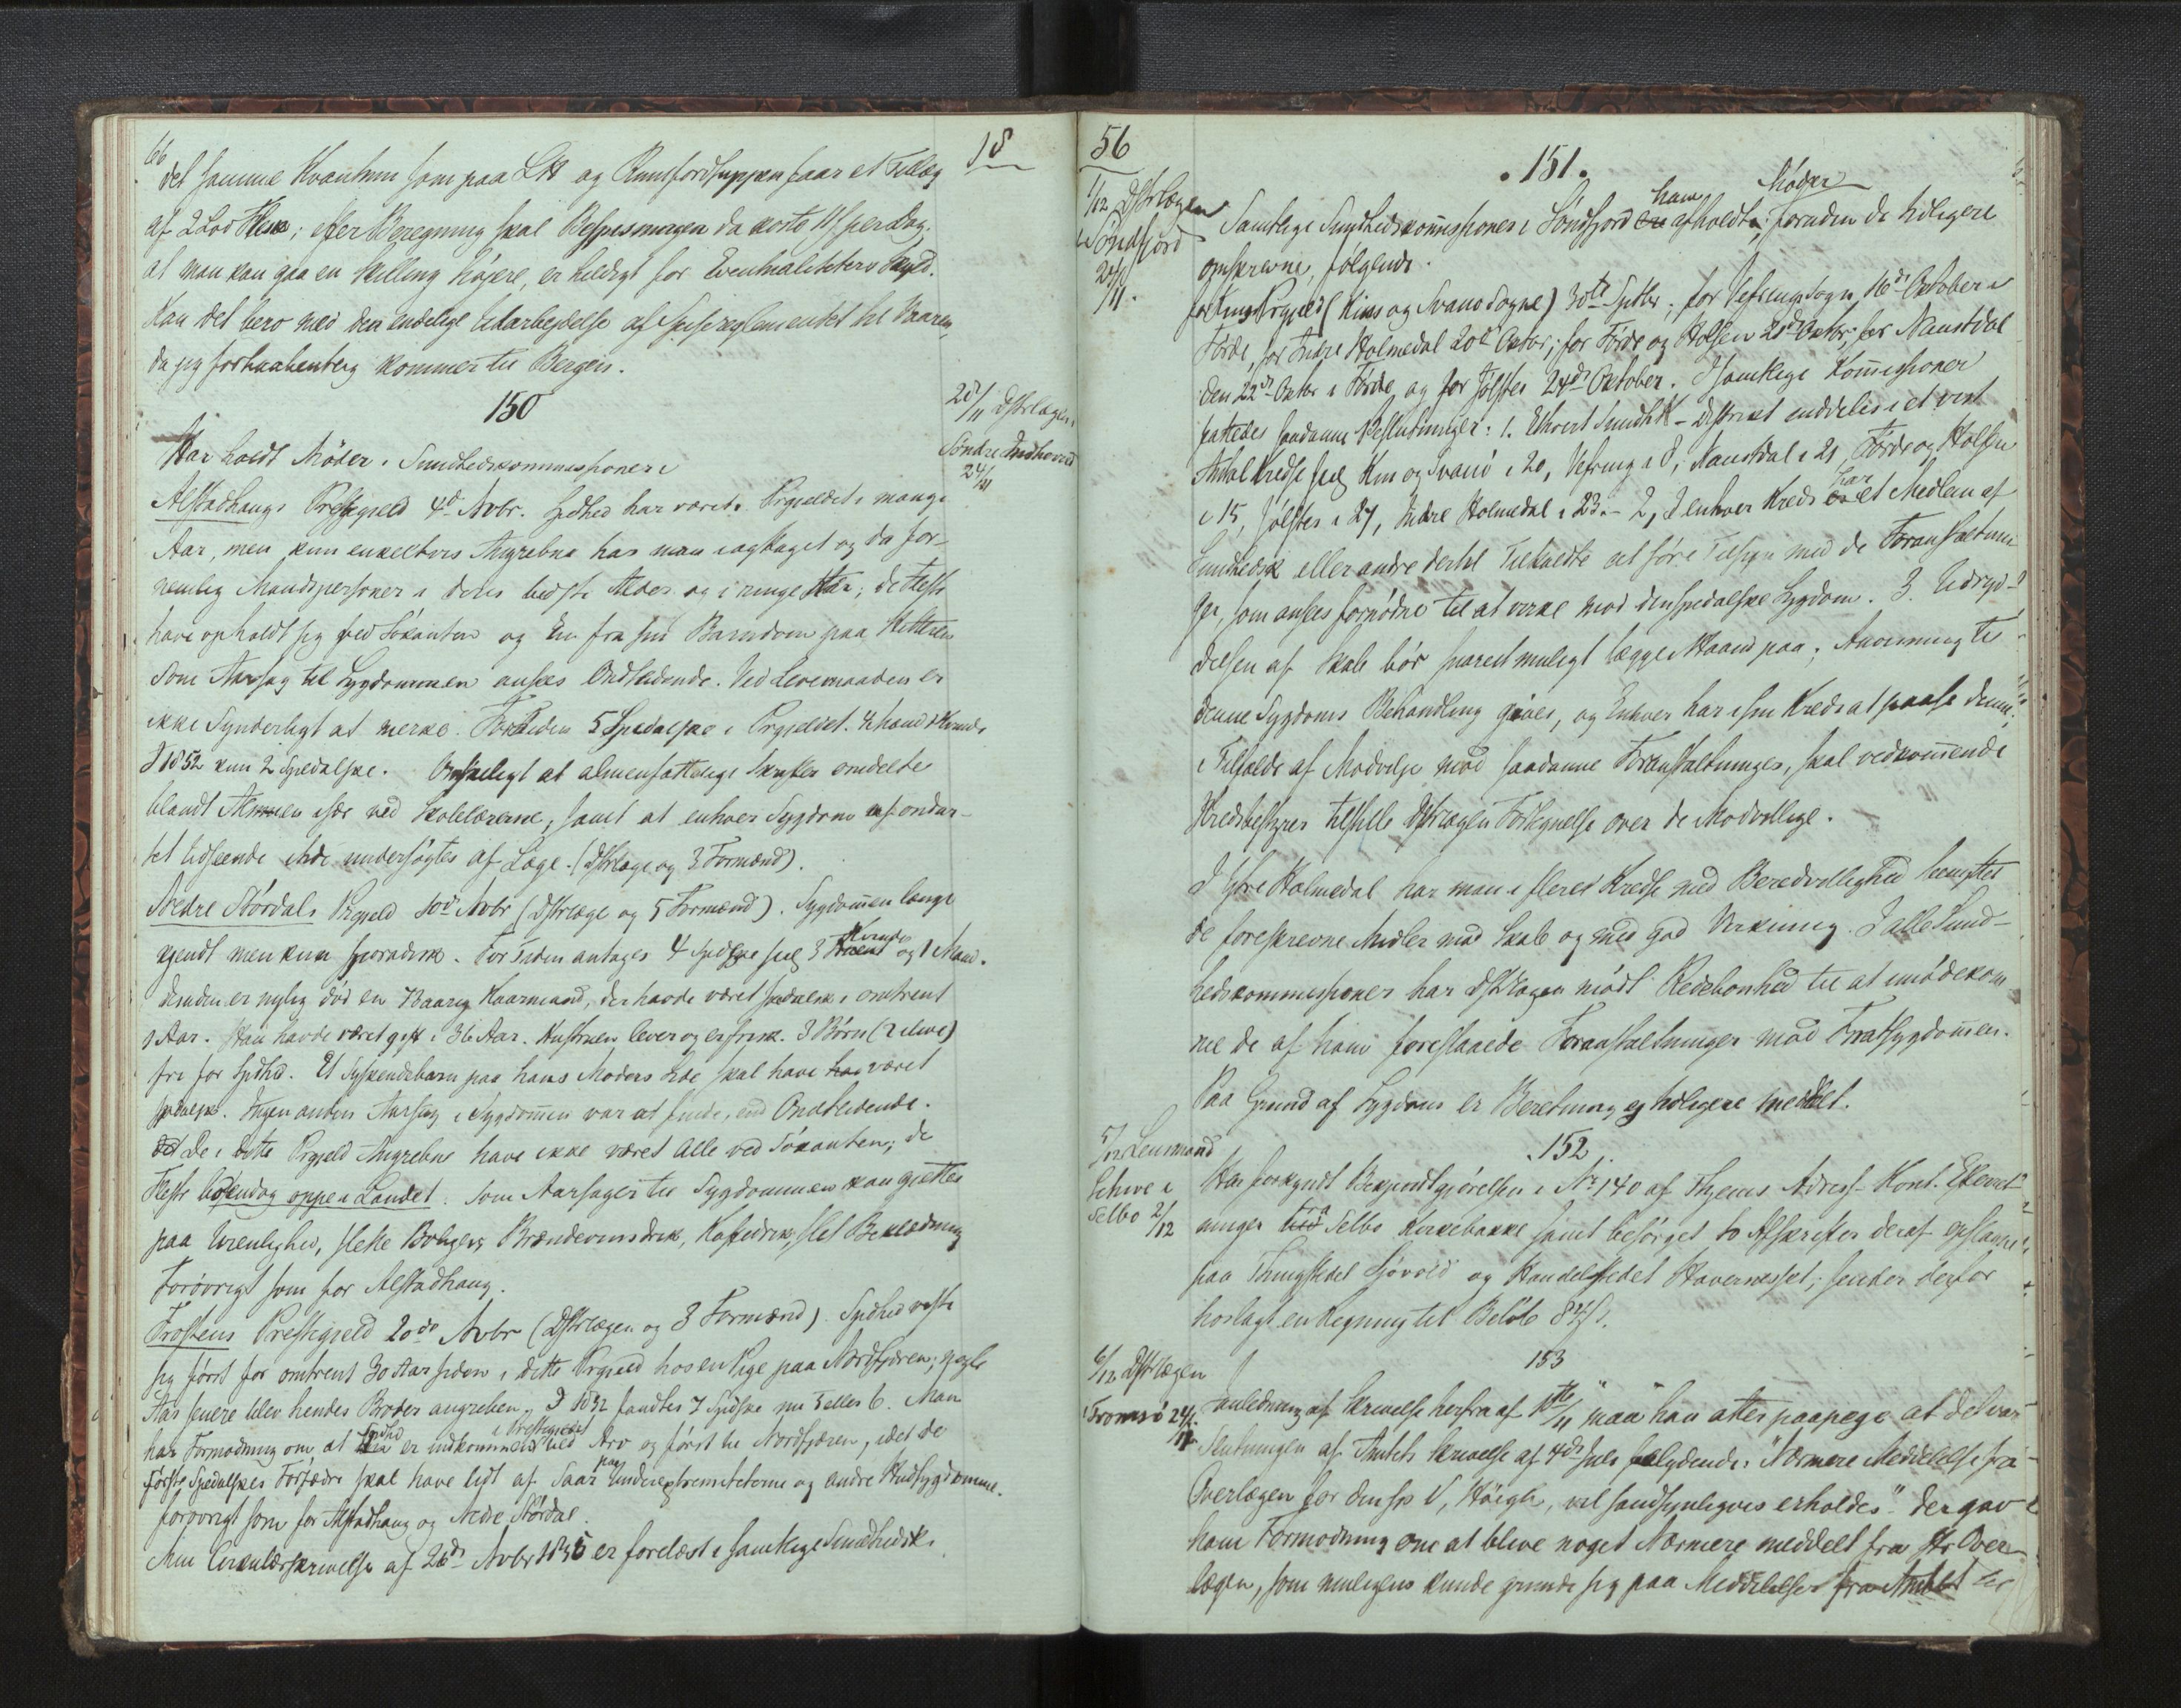 66
det samme Kvantum som paa LH og Rumfordsuppen faar et Tillæg
af 2 Lod Flesk; efter Beregning skal Bespisningen da koste 11 s per Dag;
at man kan gaa en Skilling højere, er heldigt for Eventualiteters Skyld.
Kan det bero med den endelige Udarbejdelse af Spisereglementet til Vaaren,
da jeg forhaabentlig kommer til Bergen.
18
150
28/11 Dstrlægen i
Søndre Indherred
24/11
Har holdt Møder i Sundhedskommissioner i
Alstadhaugs Prestegjeld 4de Novbr. Spdhed har været i Prgjeldet i mange
Aar, men kun enkeltvis Angrebne har man iagttaget og da for-
nemlig Mandspersoner i deres bedste Alder og i ringe Kår; de fleste
have opholdt sig ved Søkanten og En fra sin Barndom paa Hitteren
Som Aarsag til Sygdommen ansees Ondtlidende. Ved Levemaaden er
ikke Synderligt at merke. For Tiden 5 Spedalske i Prgjeldet. 4 Mænd 1 Kvinde
I 1852 kun 2 Spedalske. Ønskeligt at almenfattelige Skrifter omdeltes
blandt Almuen især ved Skolelærerne, samt at enhver Sygdom af ondar-
tet Udseende undersøgtes af Læge. (Dstrlæge og 3 Formænd).
Nedre Stördals Prgjeld 10de Novbr (Dstrlæge og 5 Formænd). Sygdommen længe
kjendt men kun sporadisk. For Tiden antages 4 Spedske 3 Kvinder og 1 Mand.
desuden er nylig död en 73aarig Huusmand, der havde været spedalsk i omtrent
Aar. Han havde været gift i 36 Aar. Hustruen lever og er frisk. 3 Börn (2 ilive)
fri for Spdhed. Et Syskendebarn paa hans Moders Side skal have været
spedalsk. Ingen anden Aarsag i Sygdommen var at finde, end Ondtlidende.
De i dette Prgjeld Angrebne have ikke været alle ved Søkanten; de
Fleste boende oppe i Landet. Som Aarsager til Sygdommen kan gjettes
paa Urenlighed, slette Boliger, Brændevinsdrik, Kaffedrik, slet Beklædning
Forøvrigt som for Alstadhaug.
Frostens Prestegjeld 20de Novbr (Dstrlægen og 8 Formænd). Spdhed viste
sig først for omtrent 30 Aar siden i dette Prgjeld hos en Pige paa Nordfjæren; nogle
Aar senere blev hendes Broder angreben. I 1852 fandtes 7 Spdske nu 5 eller 6. Man
har Formodning om at Spdhed er indkommen i Prestegjeldet ved Arv og først til Nordfjæren, idet de
første Spedalskes Forfædre skal have lidt af Saar paa Underextremiteterne og andre Hudsygdomme.
forøvrigt som for Alstadhaug og Nedre Stördal.
Min Cirkulærskrivelse af 26de Novbr 1855 er forelæst i samtlige Sundhedsk.
56
151.
1/12 Dstrlægen
i Søndfjord
2/11.
Samtlige Sundhedskommissioner i Søndfjord have afholdt Møder, foruden de tidligere
omskrevne, følgende.
for Kins Prgjeld (Kins og Svanø Sogne) 30te Septbr; for Vefrings Sogn 16de October i
Förde, for Indre Holmedal 20de Octbr; for Förde og Holsen 21de Octbr; for Naustdal
den 22de Octbr i Förde og for Jølster 24de October. I samtlige Kommissioner
fattedes saadanne Beslutninger: 1. Ethvert SundhK-Distrikt inddeles i et vist
Antal Kredse Kin og Svanø i 20, Vefring i 8, Naustdal i 21, Förde og Holsen
i 15, Jølster i 27, Indre Holmedal i 23. - 2, I enhver Kreds har et Medlem af
Sundhedsk eller andre dertil Tilkaldte at före Tilsyn med de Foranstaltnin
ger, som ansees fornødne til at virke mod den spedalske Sygdom. 3. Udryd-
delsen af Skab bør snarest muligt lægge Haand paa; Anvisning til
denne Sygdoms Behandling gives, og Enhver har i sin Kreds at paase denne;
i Tilfælde af Modvilje mod saadanne Foranstaltninger, skal vedkommende
Kredsbestyrer tilstille Dstrlægen Fortegnelse over de Modvillige.
I Ytre Holmedal har man i flere Kredse med Beredvillighed benyttet
de foreskrevne Midler mod Skab og med god Virkning. I alle Sund-
hedskommissioner har Dstrlægen mødt Redebonhed til at imødekom
me de af ham foreslaaede Foranstaltninger mod Fnatsygdommen.
Paa Grund af Sygdom er Beretning ej tidligere meddelt.
152.
5/12 Lensmand
i
Selbo 2/12
Har forkyndt Bekjendtgjørelsen i No 140 af Thjems Adress-Kont. Efterret-
ninger fra Selbo Kirkebakke samt besørget to Afskrifter deraf opslaaede
paa Thingstedet og Handelsstedet Havernesset; sender derfor
hoslagt en Regning til Beløb 84 s.
153
6/12 Dstrlægen
i Tromsö 24/11
I Anledning af Skrivelse herfra af 10de/11 "maa" han atter paapege at det var
Slutningen af Amtets Skrivelse af 4de Juli saalydende: "Nærmere Meddelelse fra
Overlægen for den sp S, Höegh, vil sandsynligvis erholdes." Der gav
ham Formodning om at blive noget Nærmere meddelt fra Hr Over
lægen, som muligens kunde grunde sig paa Meddelelser fra Amtet